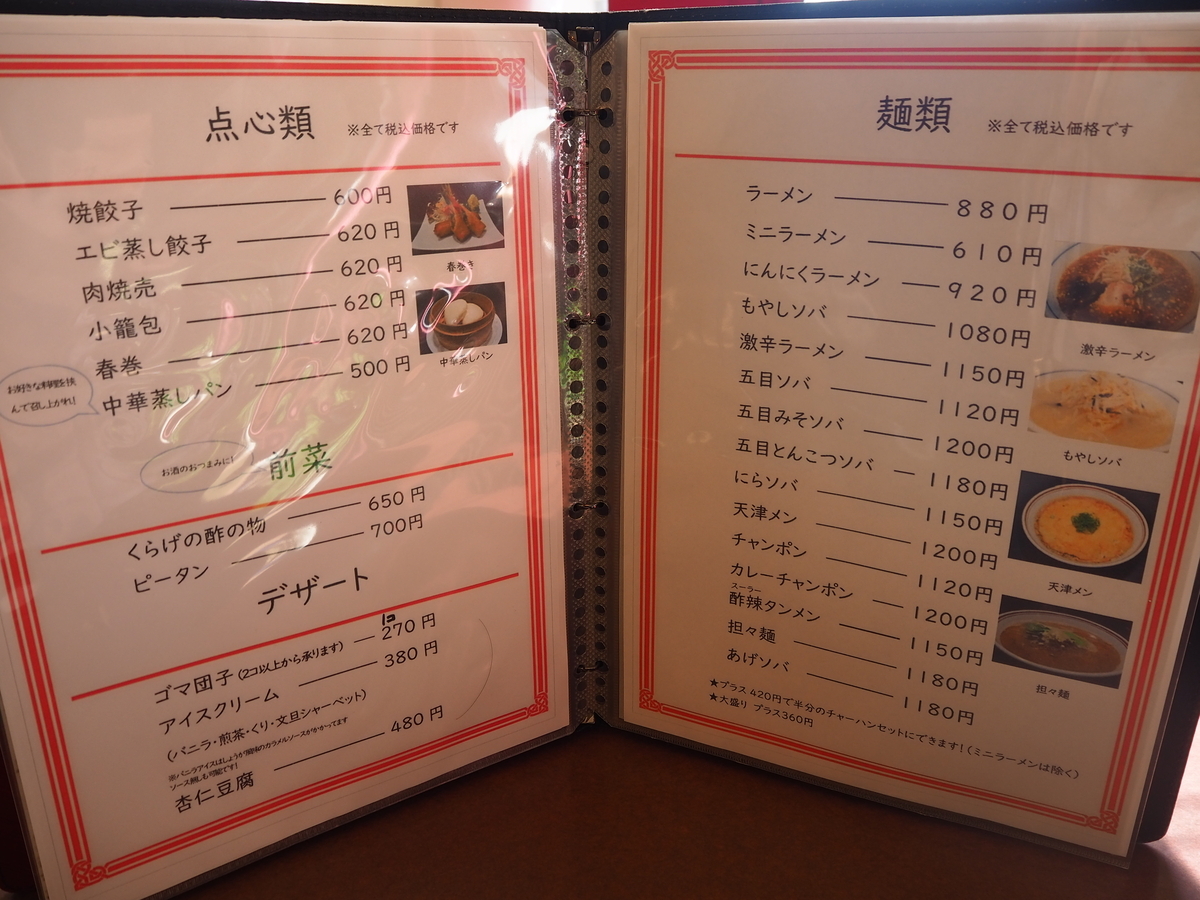 点心類 ※全て税込価格です
焼餃子 600円
エビ蒸し餃子 620円
肉焼売 620円
小籠包 620円
春巻 620円
中華蒸しパン 500円
お好きな料理を挟
んで召し上がれ!
春巻き
中華蒸しパン
お酒のおつまみに!
前菜
くらげの酢の物 650円
ピータン 700円
デザート
1コ
ゴマ団子(2コ以上から承ります) 270円
アイスクリーム 380円
(バニラ・煎茶・くり・文旦シャーベット)
※バニラアイスはしょうが風味のカラメルソースがかかってます
ソース無しも可能です!
杏仁豆腐 480円
麺類 ※全て税込価格です
ラーメン 880円
ミニラーメン 610円
にんにくラーメン 920円
もやしソバ 1080円
激辛ラーメン 1150円
五目ソバ 1120円
五目みそソバ 1200円
五目とんこつソバ 1180円
にらソバ 1150円
天津メン 1200円
チャンポン 1120円
カレーチャンポン 1200円
スーラー
酢辣タンメン 1150円
担々麺 1180円
あげソバ 1180円
★プラス420円で半分のチャーハンセットにできます!(ミニラーメンは除く)
★大盛り プラス360円
激辛ラーメン
もやしソバ
天津メン
担々麺